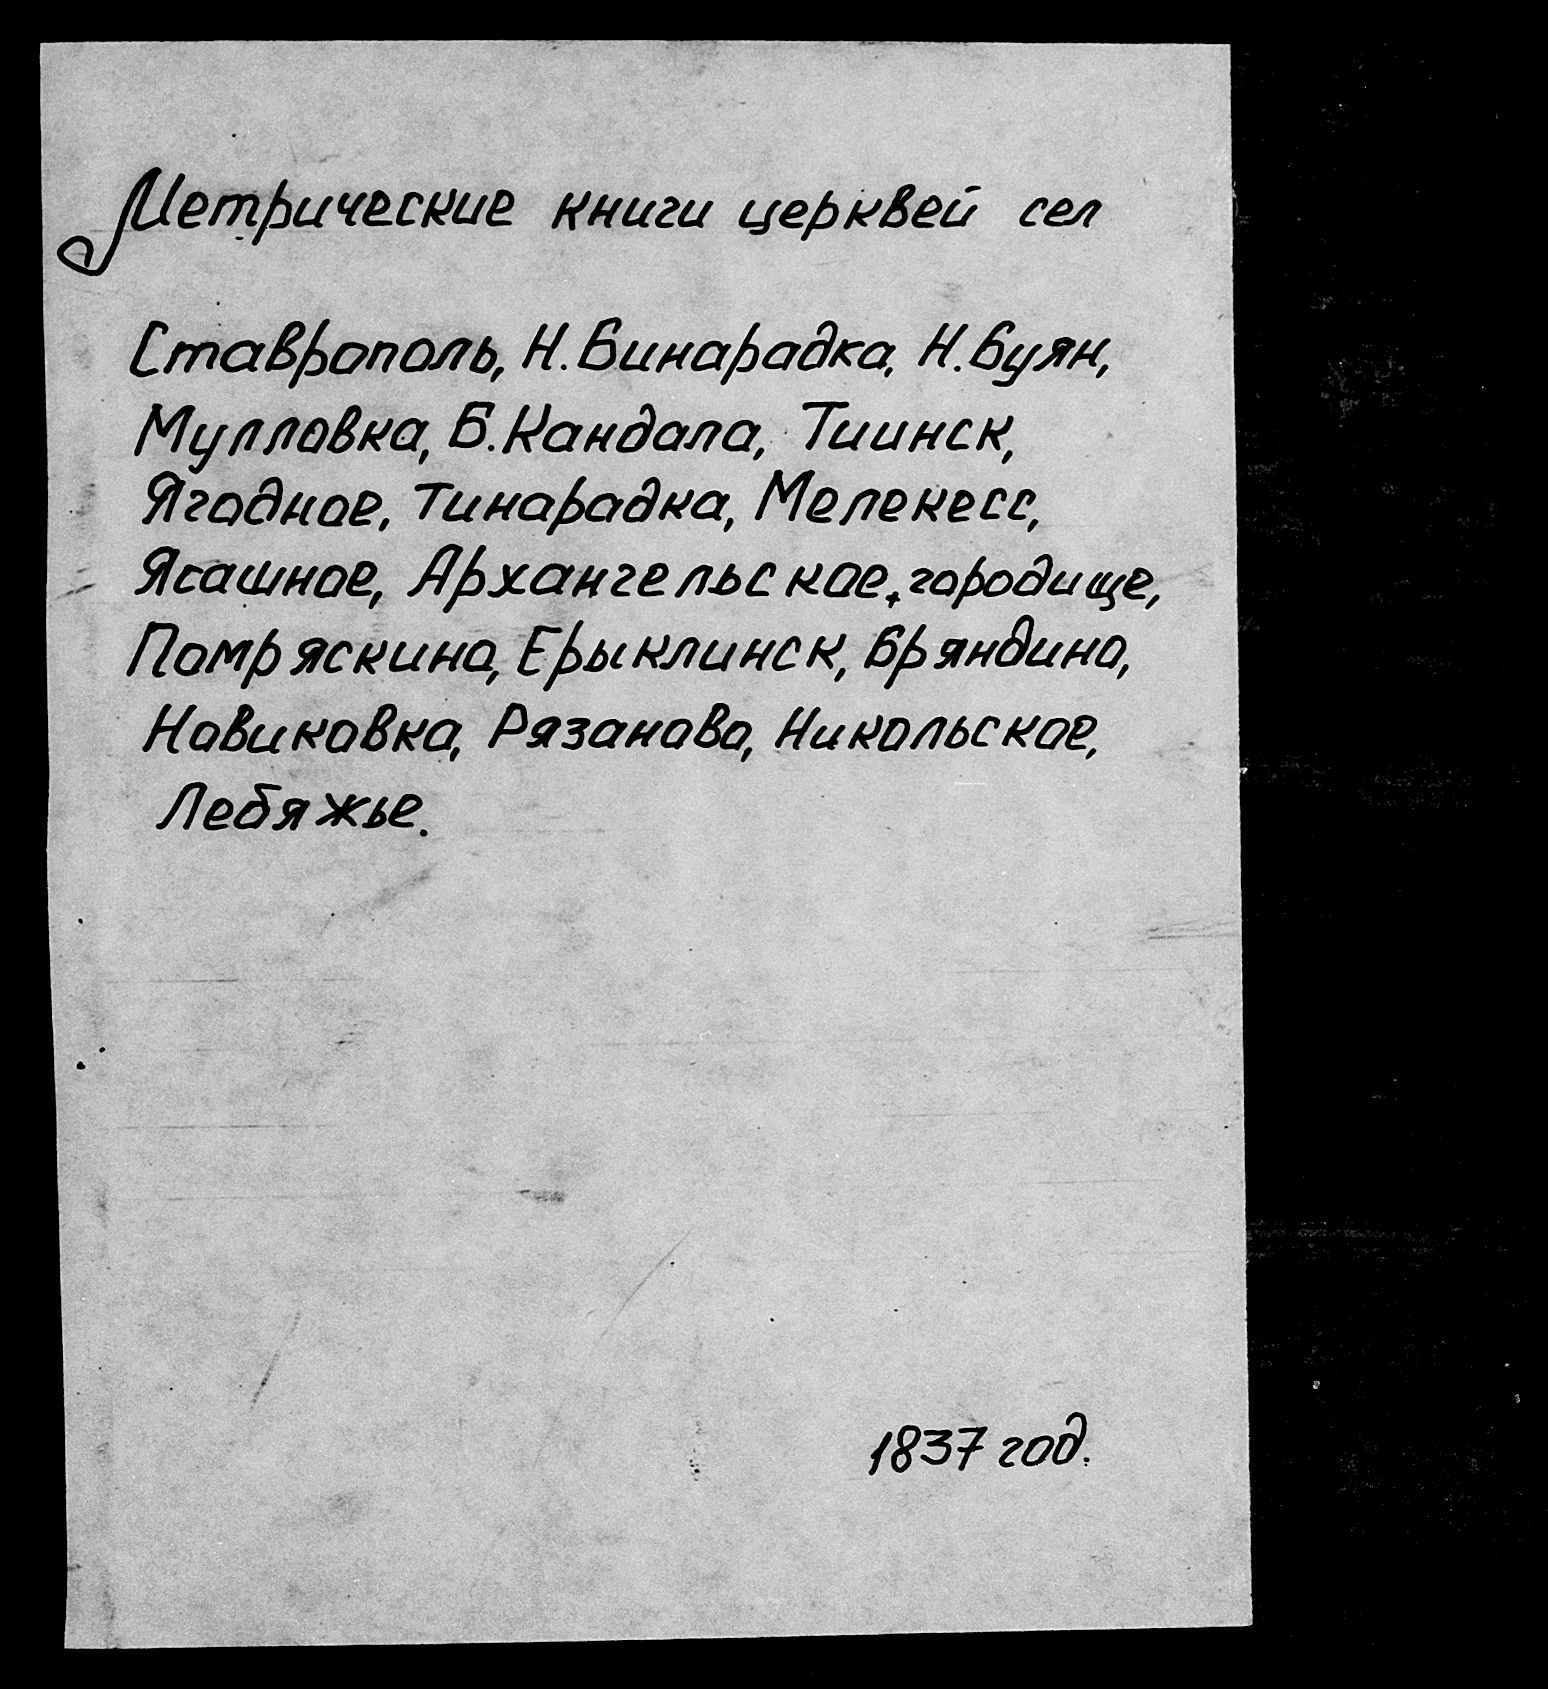 Метрические книги церквей сел
Ставрополь, Н. Бинарадка, Н. Буян,
Мулловка, Б. Кандала, Тиинск,
Ягодное, Тинарадка, Мелекесс,
Ясашное, Архангельское, городище,
Помряскино, Ерыклинск, Бряндино,
Новиковка, Рязаново, Никольское,
Лебяжье.
1837 год.